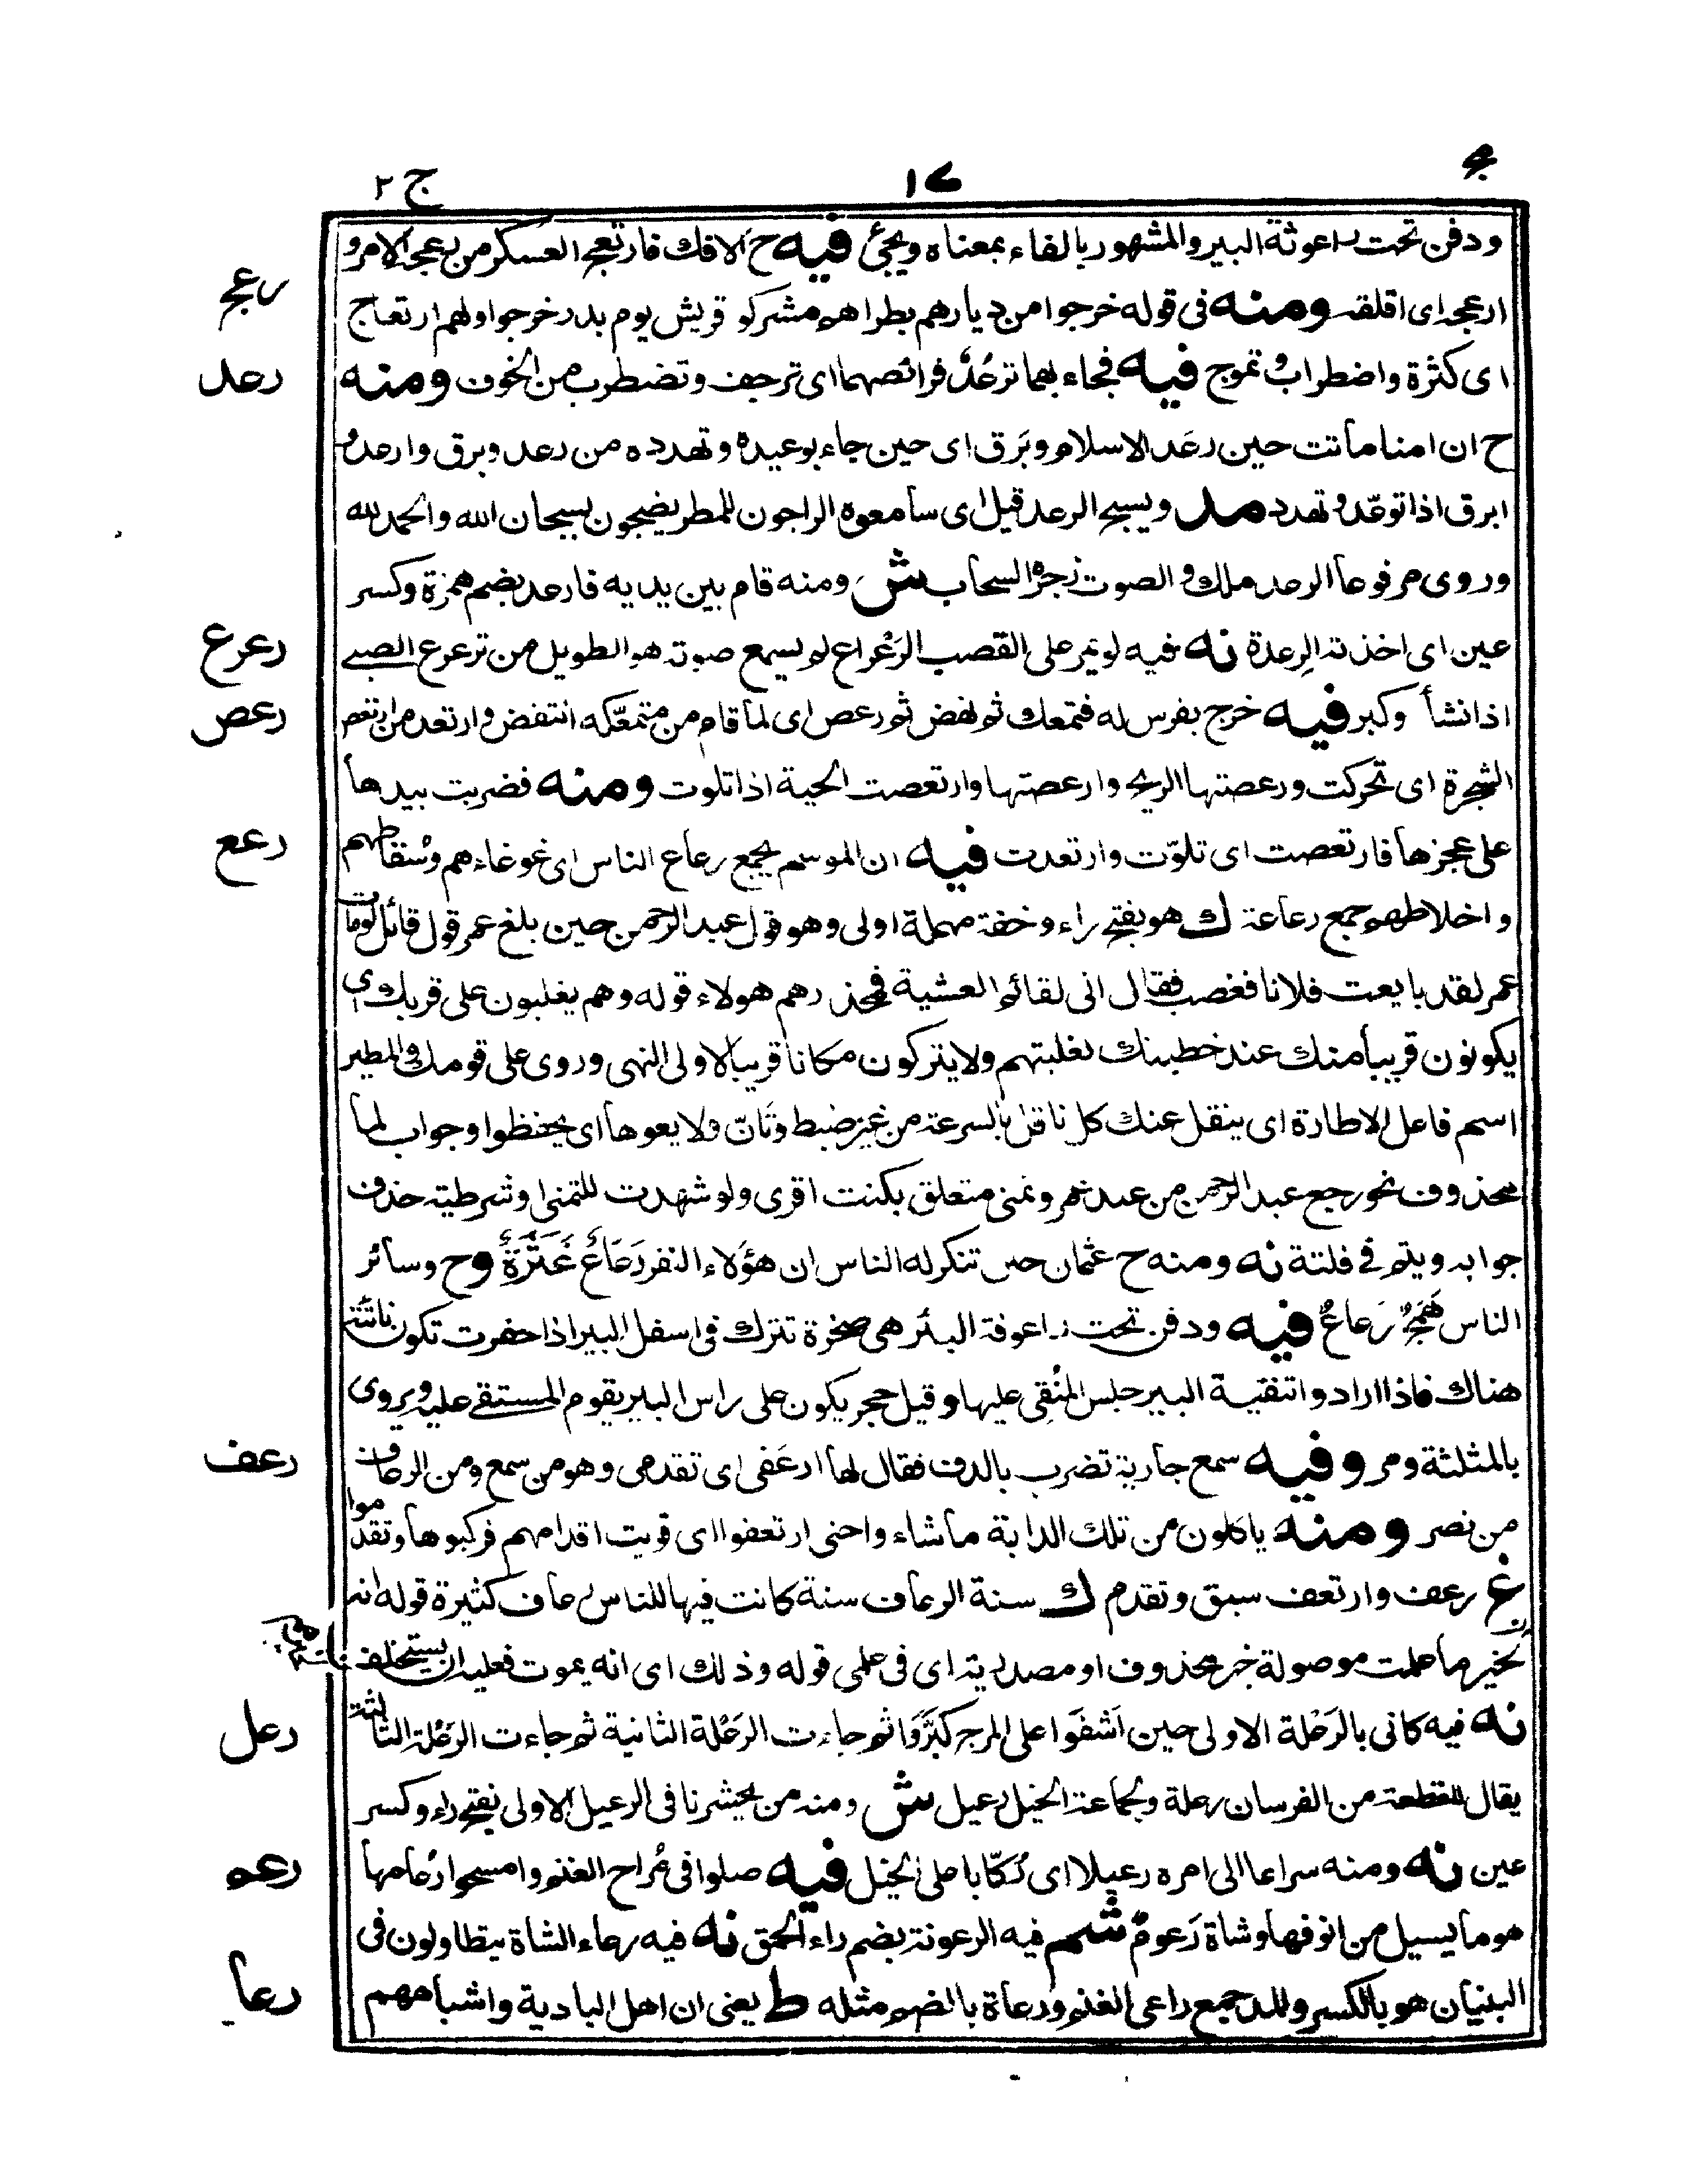 ج ٢
١٧
ودفن تحت راعوثة البير والمشهور بالفاء بمعناه ويجئ فيه ح الافك فارتعج العسكر من رعجه الامر و
رعج
ارعجه اى اقلقه ومنه فى قوله خرجوا من ديارهم بطرا هم مشركو قريش يوم بدر خرجوا ولهم ارتعاج
رعد
اى كثرة واضطراب وتموج فيه فجاء بهما تُرعَد فرائصهما اى ترجف وتضطرب من الخوف ومنه
ح ان امنا ماتت حين رعَد الاسلام وبَرق اى حين جاء بوعيده وتهدده من رعد وبرق وارعد و
ابرق اذا توعّد وتهدد مد ويسبح الرعد قيل اى سامعوه الراجون للمطر يضجون بسبحان الله والحمد لله
وروى مرفوعا الرعد ملك والصوت زجره السحاب ش ومنه قام بين يديه فارعد بضم همزة وكسر
رعرع
عين اى اخذته الرِعدة نه فيه لو يمر على القصب الرَعْراع لم يسمع صوته هو الطويل من ترعرع الصبى
رعص
اذا نشأ وكبر فيه خرج بفرس له فتمعك ثم نهض ثم رعص اى لما قام من متمعّكه انتفض وارتعد من ارتعص
الشجرة اى تحركت ورعصتها الريح وارعصتها وارتعصت الحية اذا تلوت ومنه فضربت بيدها
رعع
على عجزها فارتعصت اى تلوّت وارتعدت فيه ان الموسم يجمع رعاع الناس اى غوغاءهم وسُقاطهم
واخلاطهم جمع رعاعة ك هو بفتح راء وخفة مهملة اولى وهو قول عبد الرحمن حين بلغ عمر قول قائل لو مات
عمر لقد بايعت فلانا فغضب فقال انى لقائم العشية فمحذرهم هولاء قوله وهم يغلبون على قربك اى
يكونون قريبا منك عند خطبتك لغلبتهم ولا يتركون مكانا قريبا لاولى النهى وروى على قومك والمطير
اسم فاعل الاطارة اى ينقل عنك كل ناقل بالسرعة من غير ضبط وتَانّ ولا يعوها اى يحفظوا وجواب لما
محذوف نحو رجع عبد الرحمن من عند عمر ونمنى متعلق بكنت اقرى ولو شهدت للتمنى او شرطية حذف
جوابه ويتم فى فلتة نه ومنه ح عثمان حين تنكر له الناس ان هؤلاء النفر رَعَاعٌ غَثَرَةٌ وح وسائر
الناس هَمَجٌ رَعاعٌ فيه ودفن تحت راعوفة البئر هى صخرة تترك فى اسفل البير اذا حفرت تكون ناتئة
هناك فاذا ارادوا تنقية البير جلس المنُقى عليها وقيل حجر يكون على راس البير يقوم المستقى عليه ويروى
رعف
بالمثلثة ومر وفيه سمع جارية تضرب بالدف فقال لها ارعَفى اى تقدمى وهو من سمع ومن الرعاف
من نصر ومنه ياكلون من تلك الدابة ما شاء واحتى ارتعفوا اى قويت اقدامهم فركبوها وتقدموا
غ رعف وارتعف سبق وتقدم ك سنة الرعاف سنة كانت فيها للناس رعاف كثيرة قوله انه
لخيرهم ما علمت موصولة خبر محذوف او مصدرية اى فى علمى قوله وذلك اى انه يموت فعليه ان يستخلف
رعل
نه فيه كانى بالرَعْلة الاولى حين اَشفَوا على المرج كبَّرُوا ثم جاءت الرَعْلة الثانية ثم جاءت الرَعْلة الثالثة
يقال للقطعة من الفرسان رعلة ولجماعة الخيل رعيل ش ومنه من يحشرنا فى الرعيل الاولى بفتح راء وكسر
رعم
عين نه ومنه سراعا الى امره رعيلا اى رُكّابا على الخيل فيه صلوا فى مُراح الغنم وامسحوا رُعامها
هو ما يسيل من انوفها وشاة رَعوم شم فيه الرعونة بضم راء الحمق نه فيه رعاء الشاة يتطاولون فى
رعا
البنيان هو بالكسر والمد جمع راعى الغنم ورعاة بالضم مثله ط يعنى ان اهل البادية واشباههم